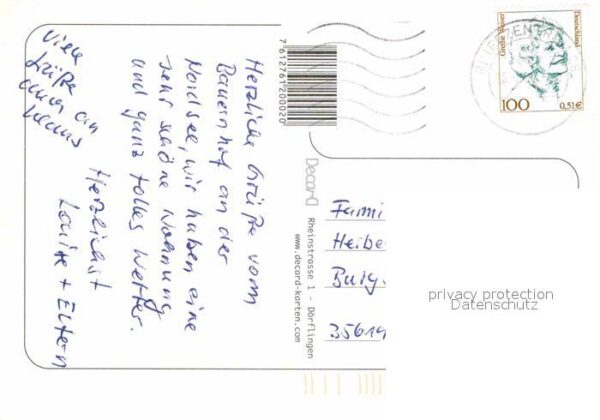 Herzliche Grüße vom
Bauernhof an der
Nordsee, wir haben eine
sehr schöne Wohnung
und ganz tolles Wetter.
Herzlichst
Louise + Eltern
Viele
Grüße
auch an
7612761200020
Decard
Rheinstrasse 1 - Dörflingen
www.decard-karten.com
Große Wasser
Deutschland
100
0,51€
ZENT
Fami
Heibe
Burg
35614
privacy protection
Datenschutz